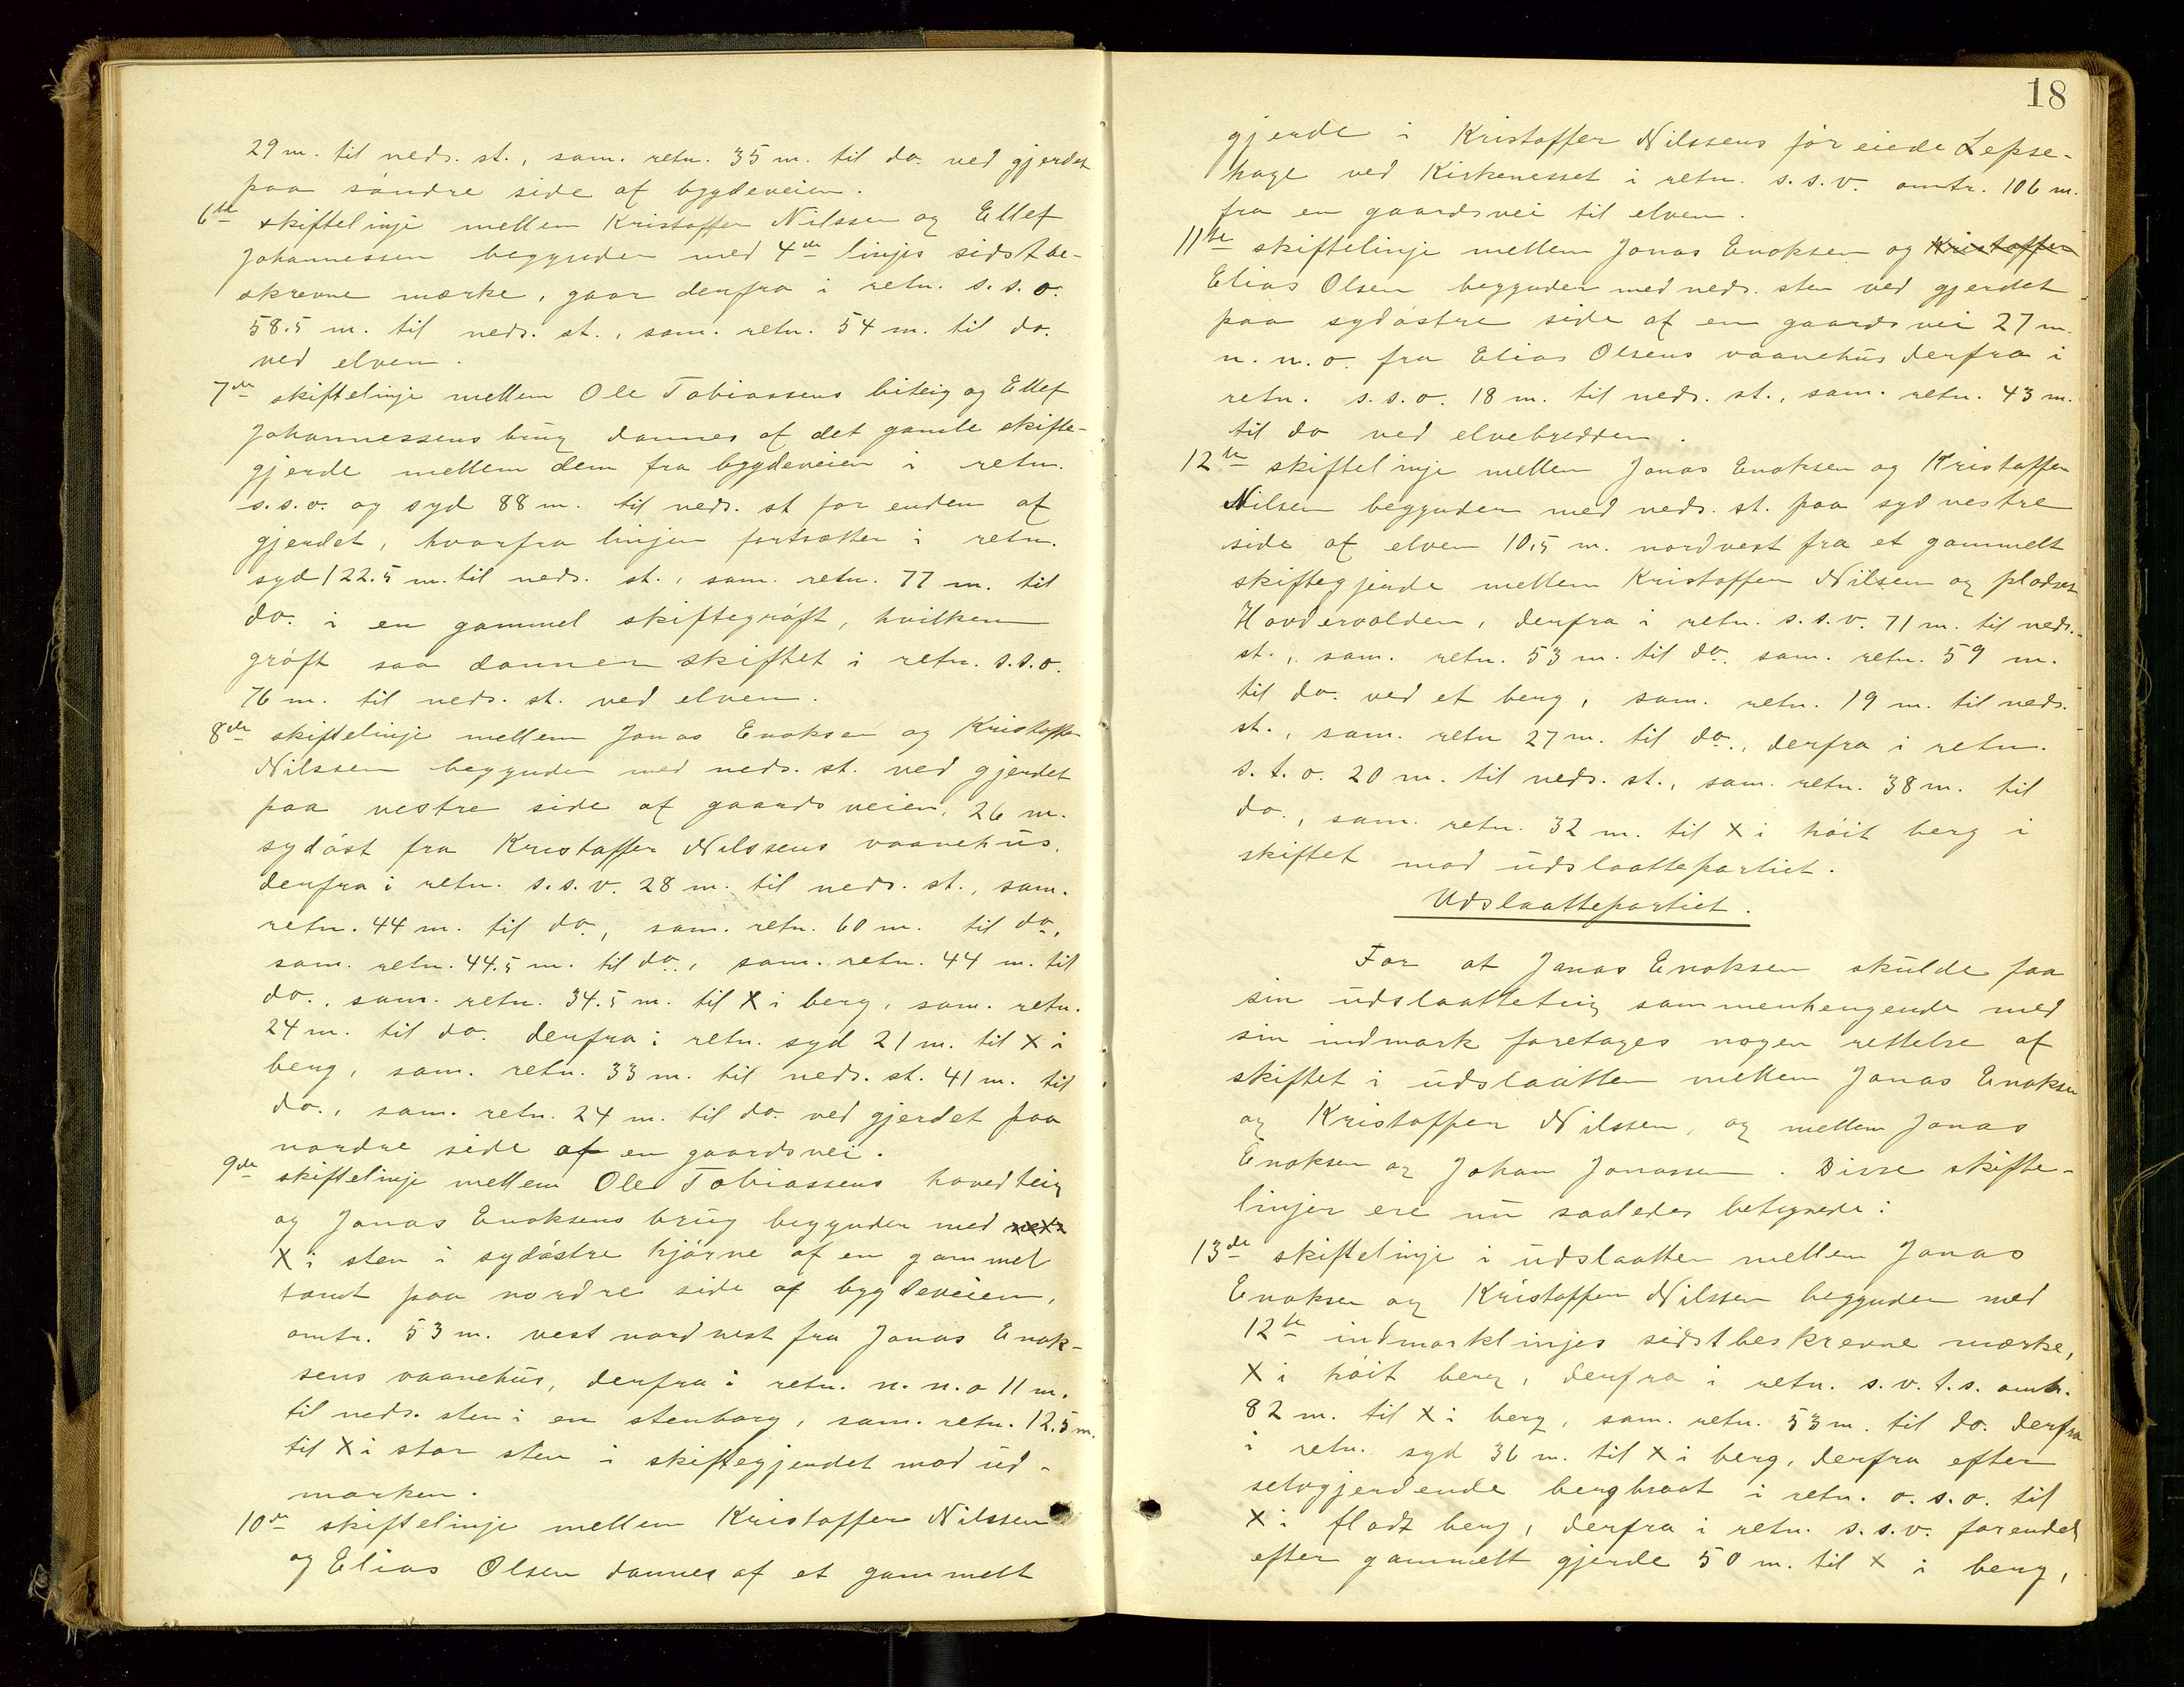 29 m. til neds. st., sam. retn. 35 m. til do. ved gjerdet
paa søndre side af bygdeveien.
6te skiftelinje mellem Kristoffer Nilssen og Ellef
Johannessen begynder med 4de linjes sidst be-
skrevne mærke, gaar derfra i retn. s.s.o.
58.5 m. til neds. st., sam. retn. 54 m. til do.
ved elven.
7de skiftelinje mellem Ole Tobiassens biteig og Ellef
Johannessens brug dannes af det gamle skifte-
gjerde mellem dem fra bygdeveien i retn.
s.s.o. og syd 88 m. til neds. st for enden af
gjerdet, hvorfra linjen fortsætter i retn.
syd 122.5 m. til neds. st., sam. retn. 77 m. til
do. i en gammel skiftegrøft, hvilken
grøft saa danner skiftet i retn. s.s.o.
76 m. til neds. st. ved elven.
8de skiftelinje mellem Jonas Enoksen og Kristoffer
Nilssen begynder med neds. st. ved gjerdet
paa vestre side af gaardsveien, 26 m.
sydøst fra Kristoffer Nilssens vaanehus.
derfra i retn. s.s.v. 28 m. til neds. st., sam.
retn. 44 m. til do., sam. retn. 60 m. til do.,
sam. retn. 44.5 m. til do., sam. retn. 44 m. til
do., sam. retn. 34.5 m. til X i berg, sam. retn.
24 m. til do. derfra i retn. syd 21 m. til X i
berg, sam. retn. 33 m. til neds. st. 41 m. til
do., sam. retn. 24 m. til do. ved gjerdet paa
nordre side af en gaardsvei.
9de skiftelinje mellem Ole Tobiassens hovedteig
og Jonas Enoksens brug begynder med
X i sten i sydøstre hjørne af en gammel
tomt paa nordre side af bygdeveien,
omtr. 53 m. vest nordvest fra Jonas Enok-
sens vaanehus, derfra i retn. n.n.o 11 m.
til neds. sten i en stenborg, sam. retn. 12.5 m.
til X i stor sten i skiftegjerdet mod ud-
marken.
10de skiftelinje mellem Kristoffer Nilssen
og Elias Olsen dannes af et gammelt
18
gjerde i Kristoffer Nilssens før eiede Lepse-
hage ved Kirkenesset i retn. s.s.v. omtr. 106 m.
fra en gaardsvei til elven.
11te skiftelinje mellem Jonas Enoksen og Kristoffer
Elias Olsen begynder med neds. sten ved gjerdet
paa sydøstre side af en gaardsvei 27 m.
n.n.o. fra Elias Olsens vaanehus derfra i
retn. s.s.o. 18 m. til neds. st., sam. retn. 43 m.
til do ved elvebredden.
12te skiftelinje mellem Jonas Enoksen og Kristoffer
Nilsen begynder med neds. st. paa sydvestre
side af elven 10,5 m. nordvest fra et gammelt
skiftegjerde mellem Kristoffer Nilsen og pladsen
Hovdervolden, derfra i retn. s.s.v. 71 m. til neds.
st., sam. retn. 53 m. til do. sam. retn. 59 m.
til do. ved et berg, sam. retn. 19 m. til neds.
st., sam. retn 27 m. til do., derfra i retn.
s.t.o. 20 m. til neds. st., sam. retn. 38 m. til
do., sam. retn. 32 m. til X i høit berg i
skiftet mod udslaattepartiet.
Udslaattepartiet.
For at Jonas Enoksen skulde faa
sin udslaatteteig sammenhengende med
sin indmark foretages nogen rettelse af
skiftet i udslaatten mellem Jonas Enoksen
og Kristoffer Nilssen, og mellem Jonas
Enoksen og Johan Jonassen. Disse skifte-
linjer ere nu saaledes betegnede:
13de skiftelinje i udslaatten mellem Jonas
Enoksen og Kristoffer Nilssen begynder med
12te indmarklinjes sidstbeskrevne mærke,
X i høit berg, derfra i retn. s.v.t.s. omtr.
82 m. til X i berg, sam. retn. 53 m. til do. derfra
i retn. syd 36 m. til X i berg, derfra efter
selvgjerdende bergbraat i retn. o.s.o. til
X i fladt berg, derfra i retn. s.s.v. forendel
efter gammelt gjerde 50 m. til X i berg,